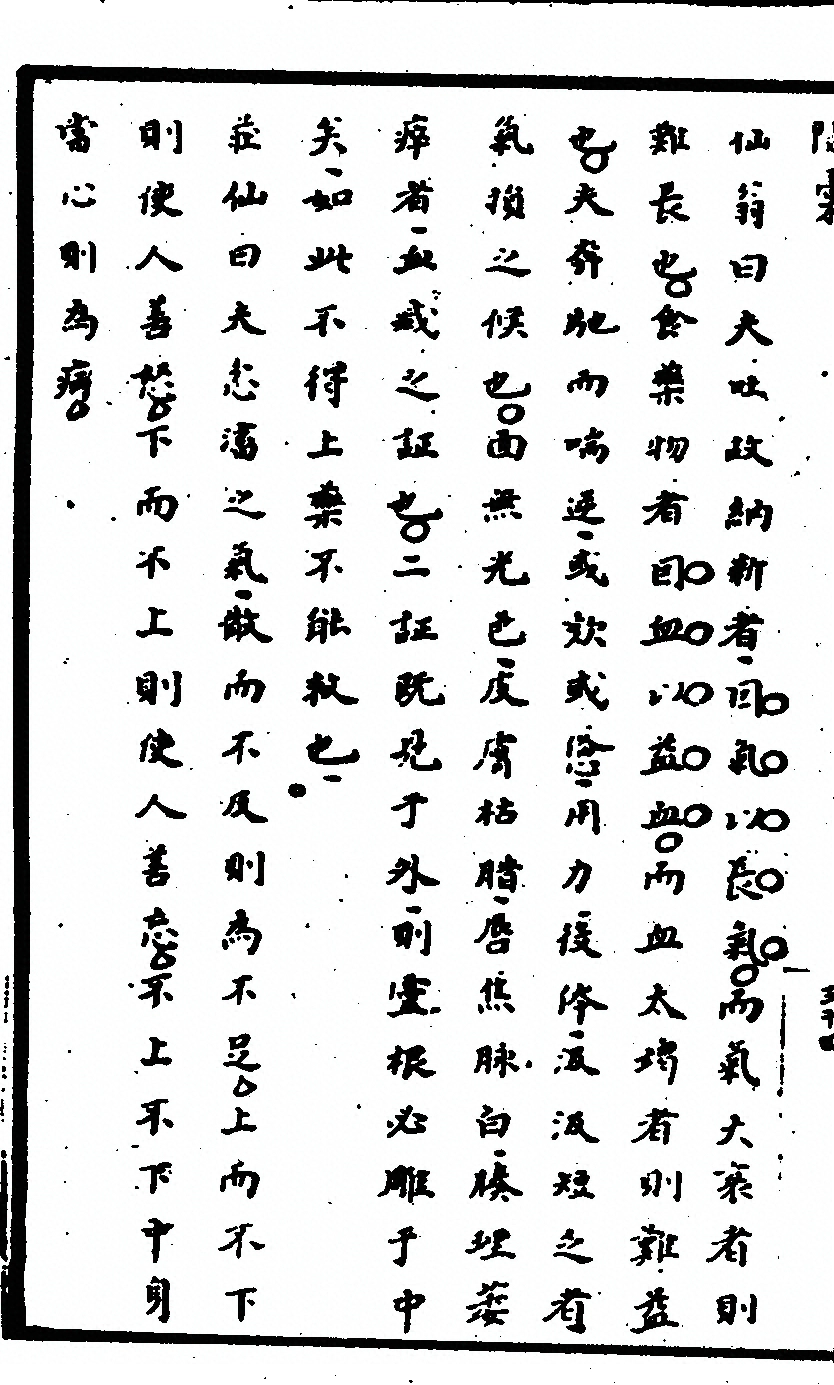 仙翁曰夫吐故納新者因氣以長氣而氣大衰者則
難長也食藥物者因血以益血而血太竭者則難益
也夫奔馳而喘逆或欬或懣用力役体汲汲短乏者
氣損之候也面無光色皮膚枯腊唇焦脉白腠理萎
瘁者血減之証也二証既見于外則靈根必雕于中
矣如此不得上藥不能救也
莊仙曰夫忿滀之氣散而不反則為不足上而不下
則使人善怒下而不上則使人善忘不上不下中身
當心則為病
五十四